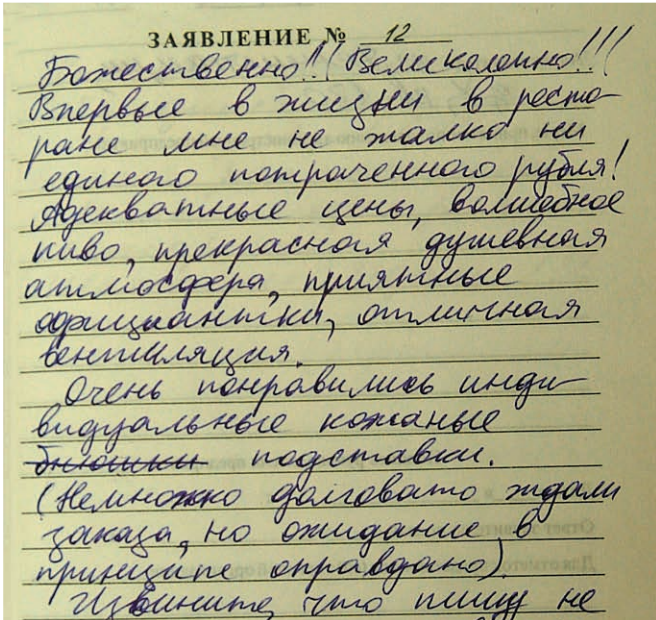 ЗАЯВЛЕНИЕ № 12
Божественно!! (Великолепно!!!(
Впервые в жизни в ресто-
ране мне не жалко ни
единого потраченного рубля!
Адекватные цены, волшебное
пиво, прекрасная душевная
атмосфера, приятные
официантки, отличная
вентиляция.
Очень понравились инди-
видуальные кожаные
подставки.
(Немножко долговато ждали
заказа, но ожидание в
принципе оправдано).
Извините, что пишу не